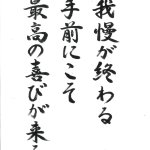 我慢が終わる
手前にこそ
最高の喜びが来る